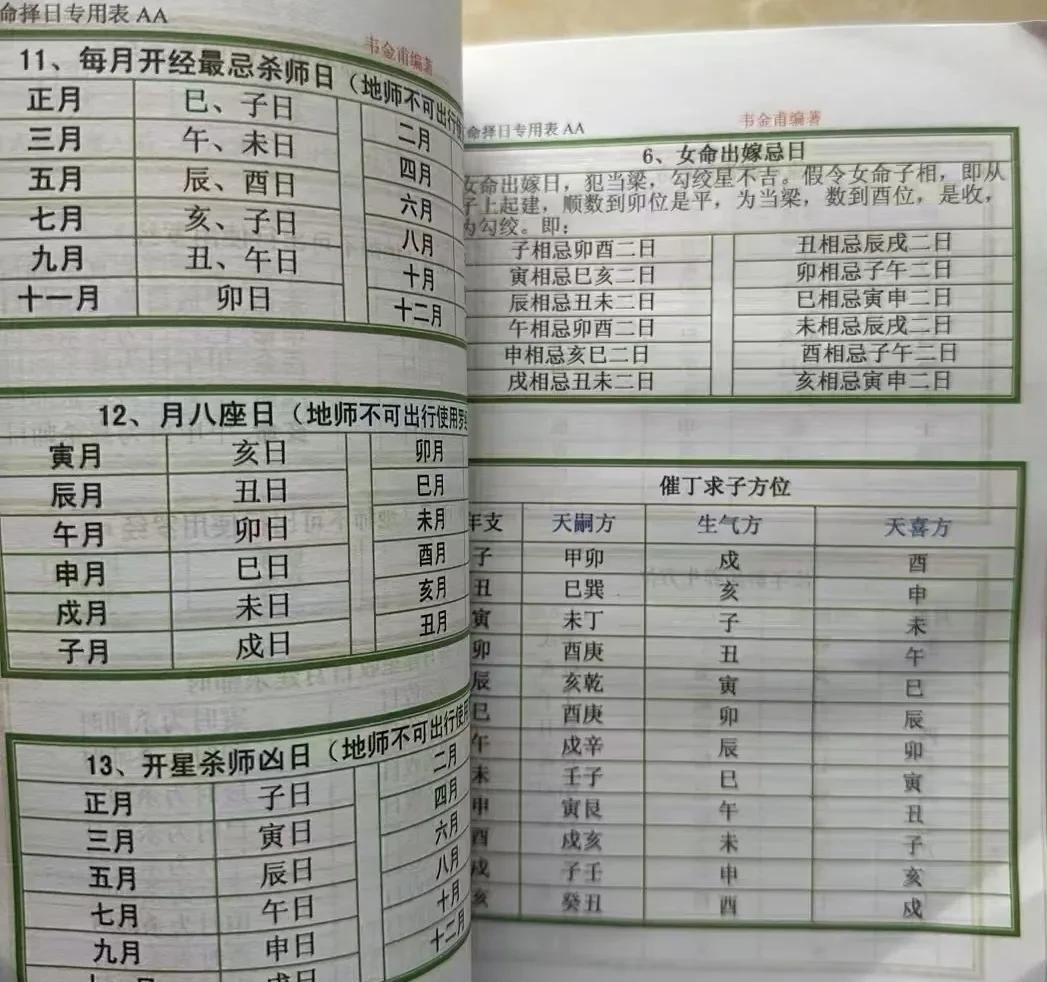 命择日专用表 AA
韦金甫编著
11、每月开经最忌杀师日（地师不可出行使
正月 巳、子日 二月
三月 午、未日 四月
五月 辰、酉日 六月
七月 亥、子日 八月
九月 丑、午日 十月
十一月 卯日 十二月
12、月八座日（地师不可出行使用罗
寅月 亥日 卯月
辰月 丑日 巳月
午月 卯日 未月
申月 巳日 酉月
戌月 未日 亥月
子月 戌日 丑月
13、开星杀师凶日（地师不可出行使用
正月 子日 二月
三月 寅日 四月
五月 辰日 六月
七月 午日 八月
九月 申日 十月
戌日 十二月
命择日专用表 AA
韦金甫编著
6、女命出嫁忌日
女命出嫁日，犯当梁，勾绞星不吉。假令女命子相，即从
子上起建，顺数到卯位是平，为当梁，数到酉位，是收，
为勾绞。即：
子相忌卯酉二日 丑相忌辰戌二日
寅相忌巳亥二日 卯相忌子午二日
辰相忌丑未二日 巳相忌寅申二日
午相忌卯酉二日 未相忌辰戌二日
申相忌亥巳二日 酉相忌子午二日
戌相忌丑未二日 亥相忌寅申二日
催丁求子方位
年支 天嗣方 生气方 天喜方
子 甲卯 戌 酉
丑 巳巽 亥 申
寅 未丁 子 未
卯 酉庚 丑 午
辰 亥乾 寅 巳
巳 酉庚 卯 辰
午 戌辛 辰 卯
未 壬子 巳 寅
申 寅艮 午 丑
酉 戌亥 未 子
戌 子壬 申 亥
亥 癸丑 酉 戌